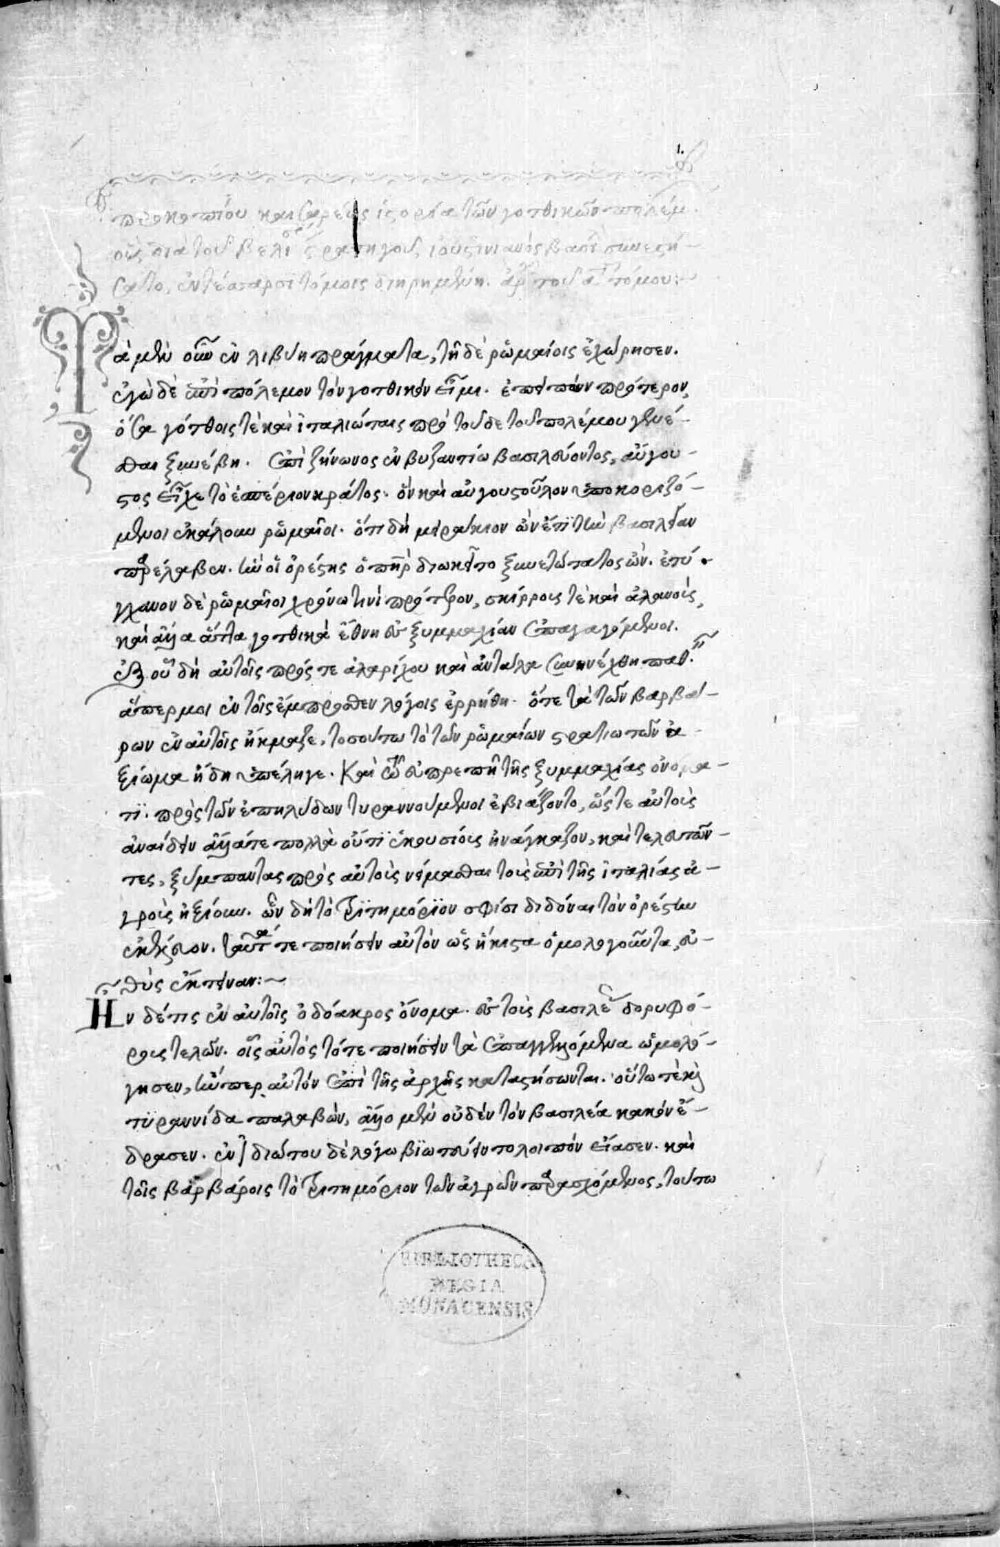 προκοπίου καισαρέως ἱστορία τῶν γοτθικῶν πολέμ
οὓς διὰ τοῦ βελισ στρατηγοῦ ἰουστινιανὸς βασι συνεστή-
σατο, ἐν τέσσαρσι τόμοις διῃρημένη. ἀρ τοῦ α τόμου:
Τὰ μὲν οὖν ἐν λιβύῃ πράγματα, τῇδε ῥωμαίοις ἐχώρησεν.
ἐγὼ δὲ ἐπὶ πόλεμον τὸν γοτθικὸν εἶμι. ἐπειπὼν πρότερον,
ὅσα γότθοις τὲ καὶ ἰταλιώταις πρὸ τοῦδε τοῦ πολέμου γενέ-
σθαι ξυνέβη. ἐπὶ ζήνωνος ἐν βυζαντίω βασιλεύοντος, αὔγου-
στος εἶχε τὸ ἑσπέριον κράτος. ὃν καὶ αὐγουστοῦλον ὑποκοριζό-
μενοι ἐκάλουν ῥωμαῖοι. ὅτι δὴ μειράκιον ὢν ἔτι τὴν βασιλείαν
παρέλαβεν. ἣν οἱ ὀρέστης ὁ πηρ διωκεῖτο ξυνετώτατος ὤν. ἐτύ-
γχανον δὲ ῥωμαῖοι χρόνω τινὶ πρότερον, σκίρροις τὲ καὶ ἀλανοὺς,
καὶ ἄλλα ἄττα γοτθικὰ ἔθνη ἐς ξυμμαχίαν ἐπαγαγόμενοι.
ἐξ οὗ δὴ αὐτοῖς πρός τε ἀλαρίχου καὶ ἀττάλα συνηνέχθη παθ
ἅπερ μοι ἐν τοῖς ἔμπροσθεν λόγοις ἐρρήθη. ὅτε τὰ τῶν βαρβά-
ρων ἐν αὐτοῖς ἤκμαζε, τοσούτω τὸ τῶν ῥωμαίων στρατιωτῶν ἀ-
ξίωμα ἤδη ὑπέληγε. Καὶ τῶ εὐπρεπεῖ τῆς ξυμμαχίας ὀνόμα-
τι. πρὸς τῶν ἐπηλύδων τυραννούμενοι ἐβιάζοντο, ὥστε αὐτοὺς
ἀναίδην ἄλλα τε πολλὰ οὔτι ἑκουσίοις ἠνάγκαζον, καὶ τελευτῶν-
τες, ξύμπαντας πρὸς αὐτοὺς νείμασθαι τοὺς ἐπὶ τῆς ἰταλίας ἀ-
γροὺς ἠξίουν. ὧν δὴ τὸ τριτημόριον σφίσι διδόναι τὸν ὀρέστην
ἐκέλευον. ταῦτά τε ποιήσειν αὐτὸν ὡς ἥκιστα ὁμολογοῦντα, εὐ-
θὺς ἔκτειναν:~
Ἦν δέ τις ἐν αὐτοῖς ὀδόακρος ὄνομα. ἐς τοὺς βασιλέ δορυφό-
ρους τελῶν. οἷς αὐτὸς τότε ποιήσειν τὰ ἐπαγγελλόμενα ὡμολό-
γησεν, ἤνπερ αὐτὸν ἐπὶ τῆς ἀρχῆς καταστήσωνται. οὕτω τὲ τὴν
τυραννίδα παλαβὼν, ἄλλο μὲν οὐδὲν τὸν βασιλέα κακὸν ἔ-
δρασεν. ἐν ἰδιώτου δὲ λόγω βιωτεύειν τολοιπὸν εἴασεν. καὶ
τοῖς βαρβάροις τὸ τριτημόριον τῶν ἀγρῶν παρασχόμενος, τούτω
BIBLIOTHECA
REGIA
MONACENSIS